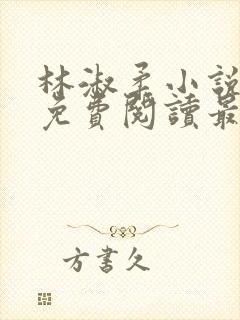 林淑柔小說
免費閱讀最
方書久